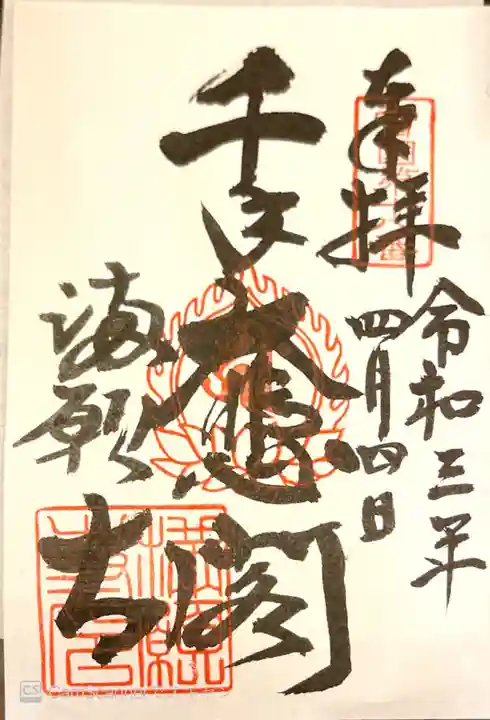 奉拝
令和三年
四月四日
千手大悲閣
満願寺
CS CamScanner